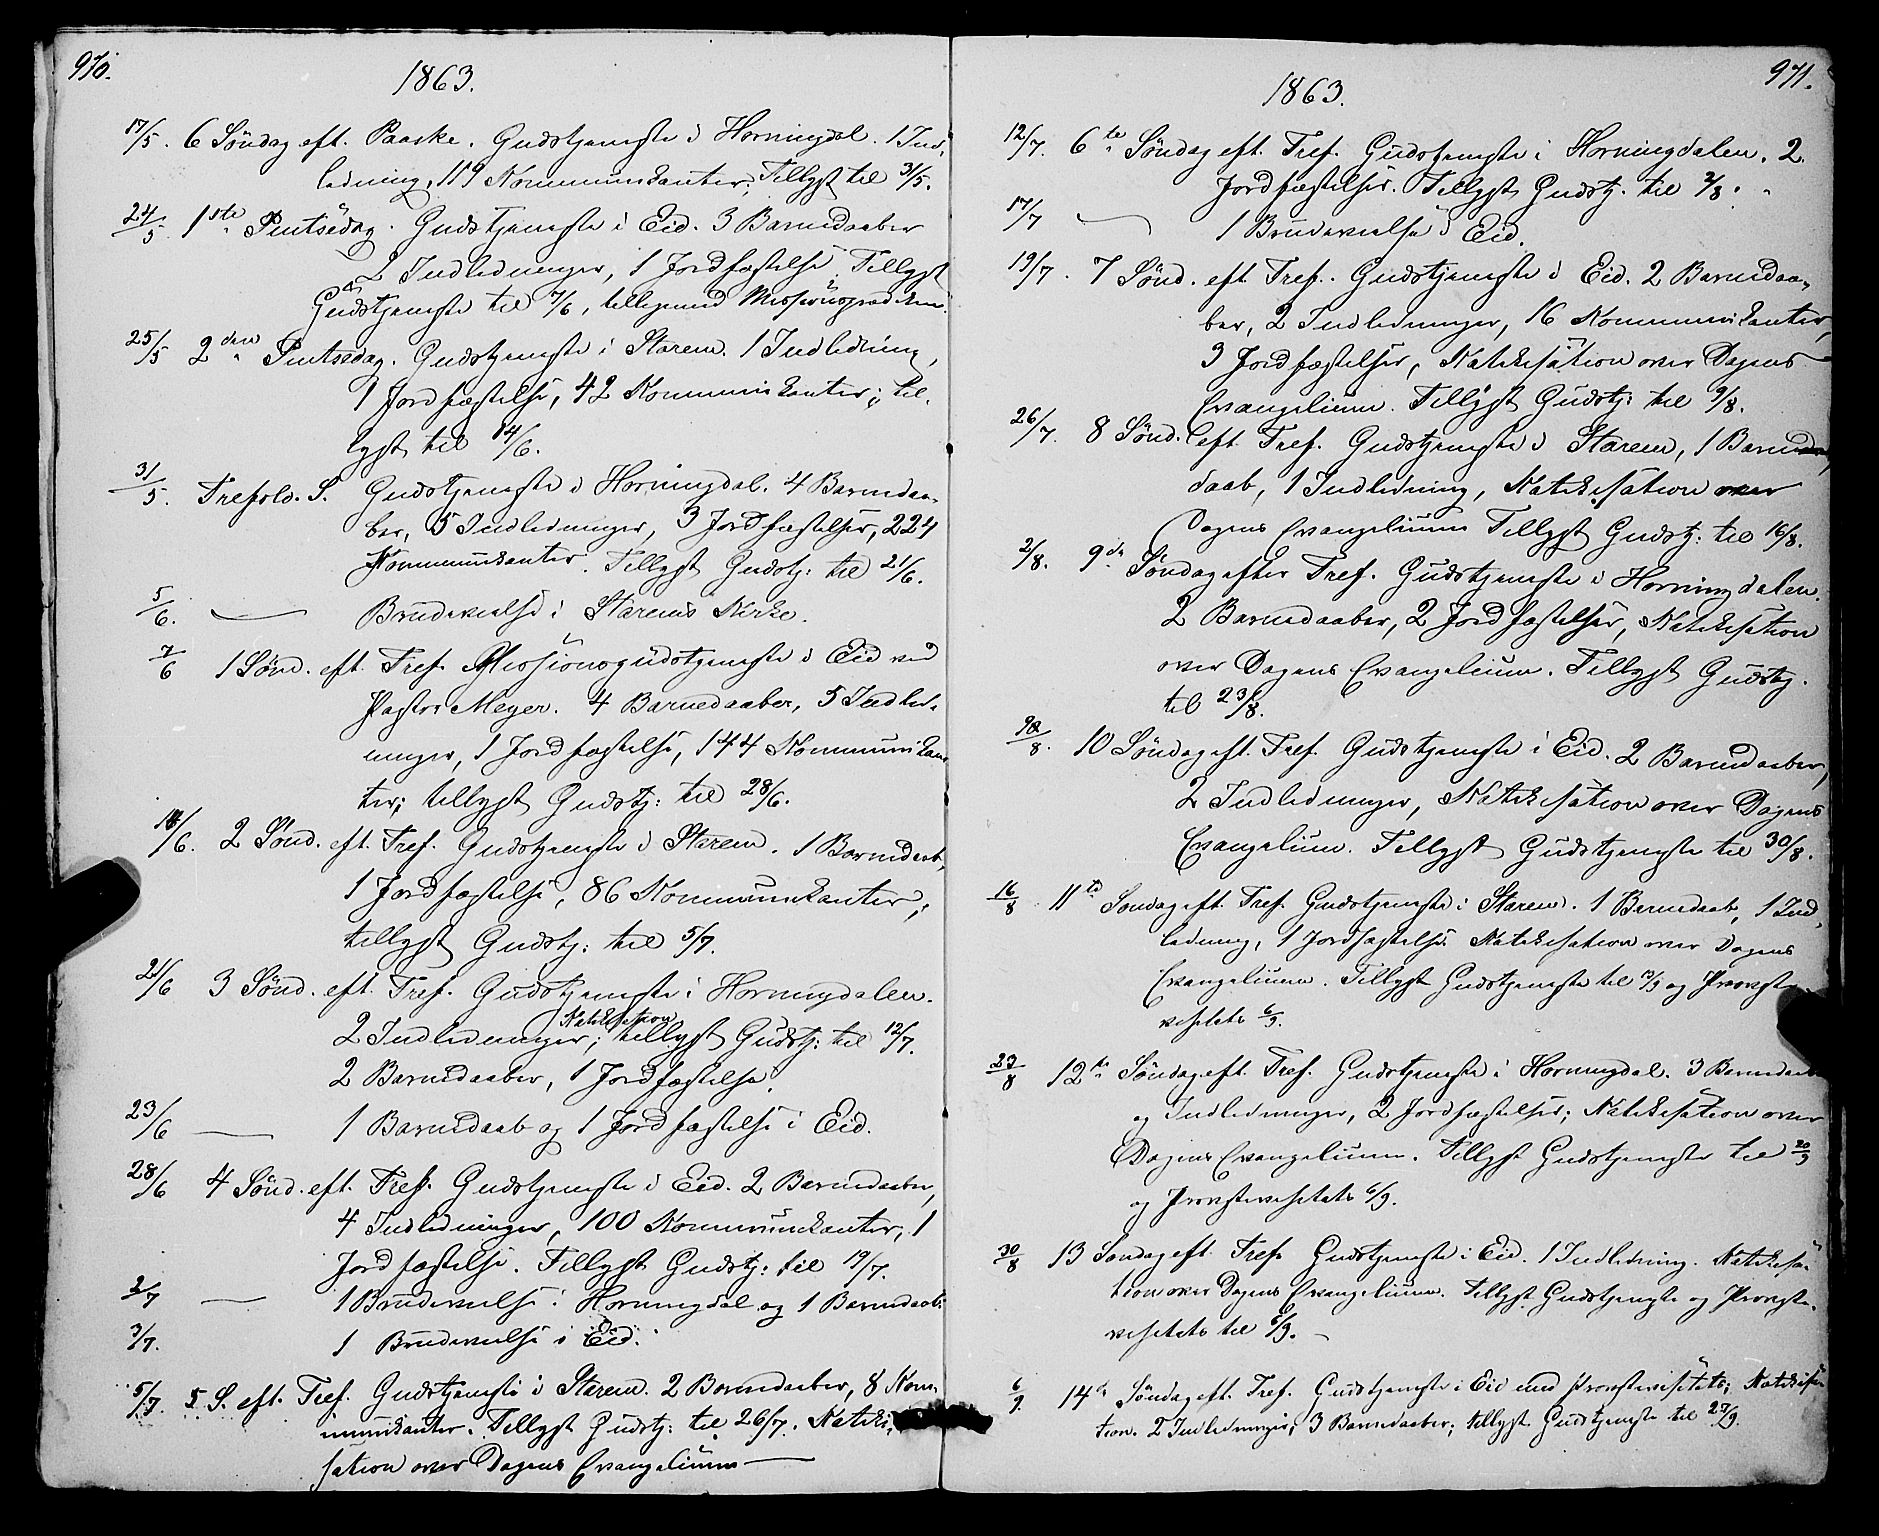 970.
1863.
17/5. 6 Søndag eft. Paaske. Gudstjeneste i Horningdal. 1 Ind-
ledning, 119 Kommunikanter; Tillyst til 31/5.
24/5 1ste Pintsedag. Gudstjeneste i Eid. 3 Barnedaaber
2 Indledninger, 1 Jordfæstelse. Tillyst
Gudstjeneste til 7/6, tilligemed Missionsprædiken.
25/5 2den Pintsedag. Gudstjeneste i Starem. 1 Indledning,
1 Jordfæstelse, 42 Kommunikanter; til-
lyst til 14/6.
31/5. Trefold. S. Gudstjeneste i Horningdal. 4 Barnedaa-
ber, 5 Indledninger, 3 Jordfæstelser, 224
Kommunikanter. Tillyst Gudstj: til 21/6.
5/6. — Brudevielse i Starems Kirke.
7/6 1 Sønd. eft. Tref. Missionsgudstjeneste i Eid ved
Pastor Meyer. 4 Barnedaaber, 5 Indled-
ninger, 1 Jordfæstelse, 144 Kommunikan-
ter; tillyst Gudstj: til 28/6.
14/6. 2 Sønd. eft. Tref. Gudstjeneste i Starem. 1 Barnedaab,
1 Jordfæstelse, 86 Kommunikanter;
tillyst Gudstj: til 5/7.
21/6 3 Sønd. eft. Tref. Gudstjeneste i Horningdalen.
Katekisation
2 Indledninger; tillyst Gudstj: til 12/7.
2 Barnedaaber, 1 Jordfæstelse.
23/6 — 1 Barnedaab og 1 Jordfæstelse i Eid.
28/6 4 Sønd. eft. Tref. Gudstjeneste i Eid. 2 Barnedaaber,
4 Indledninger, 100 Kommunikanter, 1
Jordfæstelse. Tillyst Gudstj: til 19/7.
2/7 — 1 Brudevielse i Horningdal og 1 Barnedaab.
3/7. 1 Brudevielse i Eid.
5/7. 5 S. eft. Tref. Gudstjeneste i Starem. 2 Barnedaaber, 8 Kom-
munikanter. Tillyst Gudstj: til 26/7. Kateki-
sation over Dagens Evangelium —
971.
1863.
12/7. 6te Søndag eft. Tref. Gudstjeneste i Horningdalen. 2
Jordfæstelser. Tillyst Gudstj. til 2/8.
17/7 — 1 Brudevielse i Eid.
19/7. 7 Sønd. eft. Tref. Gudstjeneste i Eid. 2 Barnedaa-
ber, 2 Indledninger, 16 Kommunikanter,
3 Jordfæstelser, Katekisation over Dagens
Evangelium. Tillyst Gudstj: til 9/8.
26/7. 8 Sønd. eft. Tref. Gudstjeneste i Starem, 1 Barne-
daab, 1 Indledning, Katekisation over
Dagens Evangelium Tillyst Gudstj: til 16/8.
2/8. 9de Søndag efter Tref. Gudstjeneste i Horningdalen.
2 Barnedaaber, 2 Jordfæstelser, Katekisation
over Dagens Evangelium. Tillyst Gudstj.
til 23/8.
9/8. 10 Søndag eft. Tref. Gudstjeneste i Eid. 2 Barnedaaber,
2 Indledninger, Katekisation over Dagens
Evangelium. Tillyst Gudstjeneste til 30/8.
16/8 11te Søndag eft. Tref. Gudstjeneste i Starem. 1 Barnedaab, 1 Ind-
ledning, 1 Jordfæstelse. Katekisation over Dagens
Evangelium. Tillyst Gudstjeneste til 13/9 og Provste-
visitats 6/9.
23/8 12te Søndag eft. Tref. Gudstjeneste i Horningdal. 3 Barnedaab
og Indledninger, 2 Jordfæstelser; Katekisation over
Dagens Evangelium. Tillyst Gudstjeneste til 20/9
og Provstevisitats 6/9.
30/8 13 Søndag eft. Tref. Gudstjeneste i Eid. 1 Indledning. Katekisa-
tion over Dagens Evangelium. Tillyst Gudstjeneste og Provste-
visitats til 6/9. —
6/9. 14de Søndag eft. Tref. Gudstjeneste i Eid med Provstevisitats; Katekisa-
tion. 2 Indledninger; 3 Barnedaaber; tillyst Gudstjeneste til 27/9.